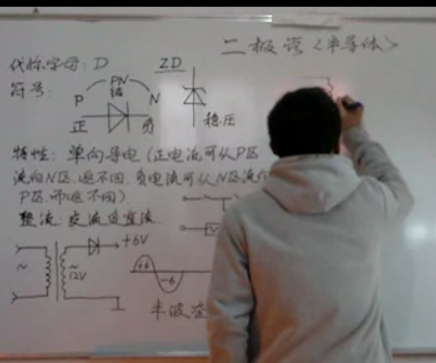 二极管〈半导体〉
代标字母: D
ZD
符号:
PN
结
P
N
正
负
稳压
特性: 单向导电 (正电流可从P区
流向N区,返不回. 负电流可从N区流
P区 而返不回).
整流: 交流变直流
~
~
12V
+6V
+6
-6
半波整